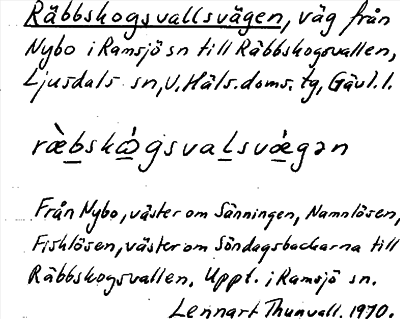 Räbbskogsvallsvägen, väg från
Nybo i Ramsjö sn till Räbbskogsvallen,
Ljusdals sn, V. Häls. doms. tg, Gävl. l.
ræ̀bskώgsvalsvæ̀gən
Från Nybo, väster om Sänningen, Namnlösen,
Fisklösen, väster om Söndagsbackarna till
Räbbskogsvallen. Uppt. i Ramsjö sn.
Lennart Thunvall. 1970.